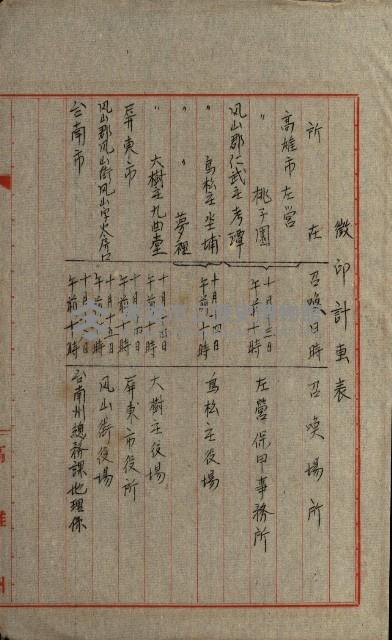 徴印計畫表
所在 召喚日時 召喚場所
高雄市左營
〃 桃子園 十月十三日 午前十時 左營保甲事務所
鳳山郡仁武庄考潭
〃 鳥松庄坔埔 十月十四日 午前十時 鳥松庄役場
〃 〃 夢裡
〃 大樹庄九曲堂 十月十四日 午前十時 大樹庄役場
屏東市 十月十四日 午前十時 屏東市役所
鳳山郡鳳山街鳳山 十月十 日 午前十時 鳳山街役場
台南市 十月十 日 午前十時 台南州總務課地理係
高雄州